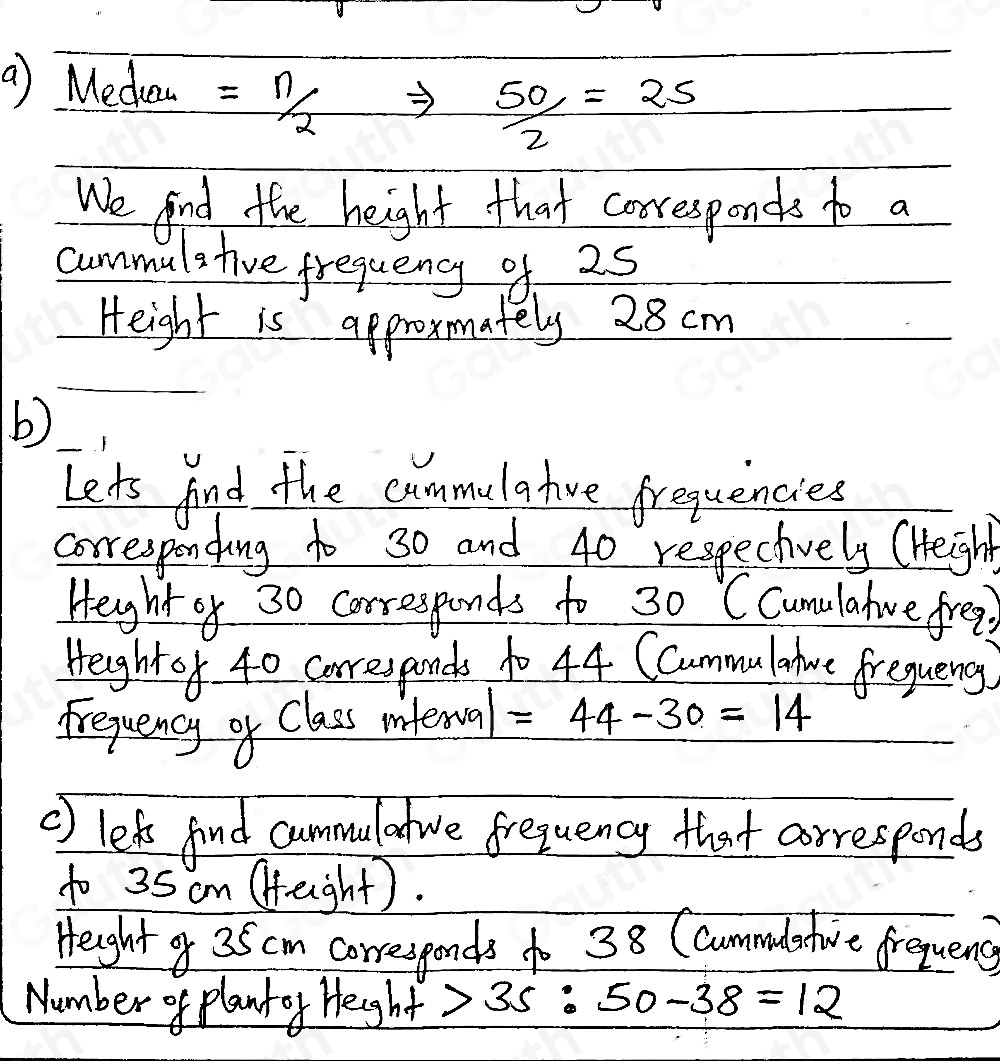 a) Median = n/2 ⇒ 50/2 = 25
We find the height that corresponds to a
cummulative frequency of 25
Height is approxmately 28 cm
b)
Lets find the cummulative frequencies
corresponding to 30 and 40 respectively (Height)
Height of 30 corresponds to 30 (Cumulative freq.)
Height of 40 corresponds to 44 (Cummulative frequency)
frequency of Class interval = 44 - 30 = 14
c) lets find cummulative frequency that corresponds
to 35 cm (Height).
Height of 35 cm corresponds to 38 (Cummulative frequency
Number of plant of Height > 35 : 50 - 38 = 12